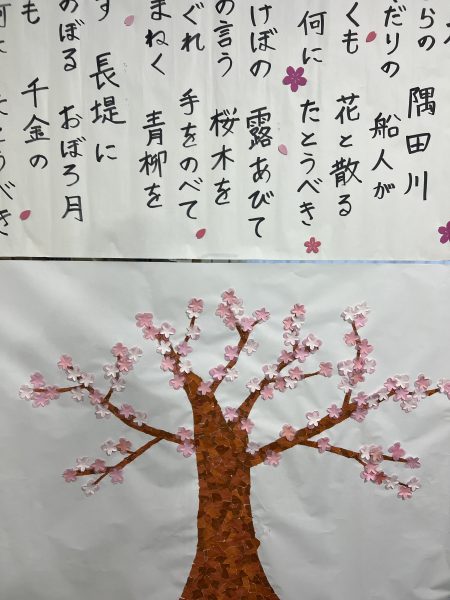 らの 隅田川
だりの 船人が
くも 花と散る
何に たとうべき
けぼの 露あびて
の言う 桜木を
ぐれ 手をのべて
まねく 青柳を
す 長堤に
のぼる おぼろ月
も 千金の
とうべき